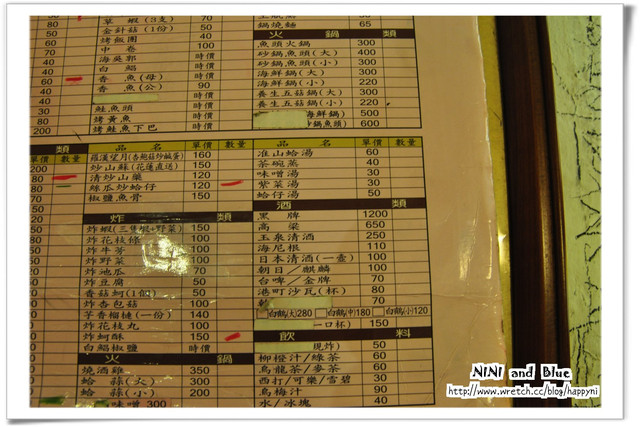 草蝦(3支) 70
金針菇(1份) 50
烤飯團 40
中卷 100
海吳郭 時價
白鯧 時價
香魚(母) 時價
香魚(公) 90
時價
鮭魚頭 時價
烤黃魚 時價
烤鮭魚下巴 時價
鍋燒麵 65
火鍋類
魚頭火鍋 300
砂鍋魚頭(大) 400
砂鍋魚頭(小) 300
海鮮鍋(大) 300
海鮮鍋(小) 220
養生五菇鍋(大) 300
養生五菇鍋(小) 220
海鮮鍋) 500
鍋魚頭) 600
類
單價 數量 品名 單價 數量
羅漢望月(杏鮑菇炒鹹蛋) 160
炒山蘇(花蓮直送) 150
清炒山藥 150
絲瓜炒蛤仔 120
椒鹽魚骨 150
炸類
炸蝦(三隻蝦+野菜) 150
炸花枝條 100
炸牛蒡 100
炸野菜 100
炸地瓜 70
炸豆腐 50
香菇蚵(1個) 50
炸杏包菇 100
芋香榴槤(一份) 140
炸花枝丸 100
炸蚵酥 150
白鯧椒鹽 時價
火鍋
燒酒雞 350
蛤蒜(大) 300
蛤蒜(小) 200
味噌 300
品名 單價 數量
淮山蛤湯 60
茶碗蒸 40
味噌湯 30
紫菜湯 30
蛤仔湯 50
酒類
黑牌 1200
高梁 650
玉泉清酒 250
海尼根 110
日本清酒(一壺) 100
朝日/麒麟 100
台啤/金牌 70
港町沙瓦(杯) 80
乾
白鶴(大)280 白鶴(中)180 白鶴(小)120
一口杯) 150
飲料
現炸) 50
柳橙汁/綠茶 60
烏龍茶/麥茶 60
西打/可樂/雪碧 30
烏梅汁 90
水/冰塊 40
NiNi and Blue
http://www.wretch.cc/blog/happyni